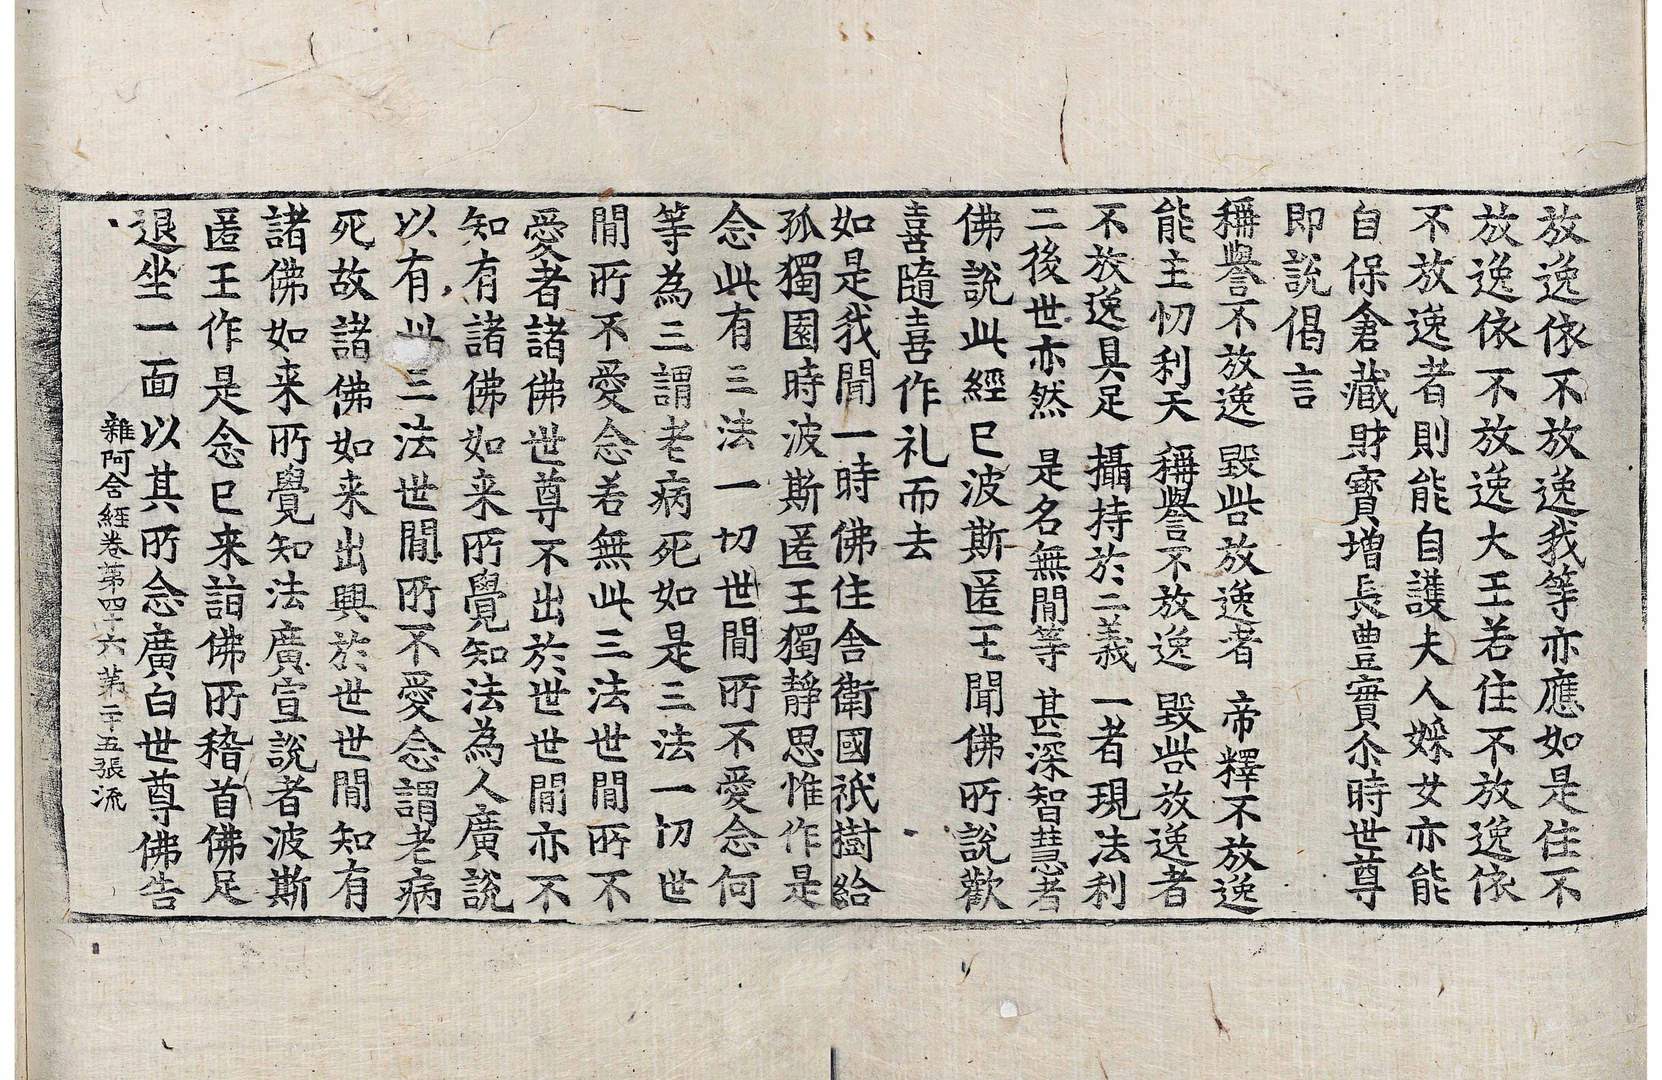 放逸依不放逸我等亦應如是住不
放逸依不放逸大王若住不放逸依
不放逸者則能自護夫人婇女亦能
自保倉藏財寶增長豊實尒時世尊
即說偈言
稱譽不放逸 毀呰放逸者 帝釋不放逸
能主忉利天 稱譽不放逸 毀呰放逸者
不放逸具足 攝持於二義 一者現法利
二後世亦然 是名無閒等 甚深智慧者
佛說此經已波斯匿王聞佛所說歡
喜隨喜作礼而去
如是我聞一時佛住舍衛國祇樹給
孤獨園時波斯匿王獨靜思惟作是
念此有三法一切世閒所不愛念何
等為三謂老病死如是三法一切世
閒所不愛念若無此三法世閒所不
愛者諸佛世尊不出於世世閒亦不
知有諸佛如来所覺知法為人廣說
以有此三法世閒所不愛念謂老病
死故諸佛如来出興於世世閒知有
諸佛如来所覺知法廣宣說者波斯
匿王作是念已来詣佛所稽首佛足
退坐一面以其所念廣白世尊佛告
雜阿含經卷第四十六 第二十五張 流